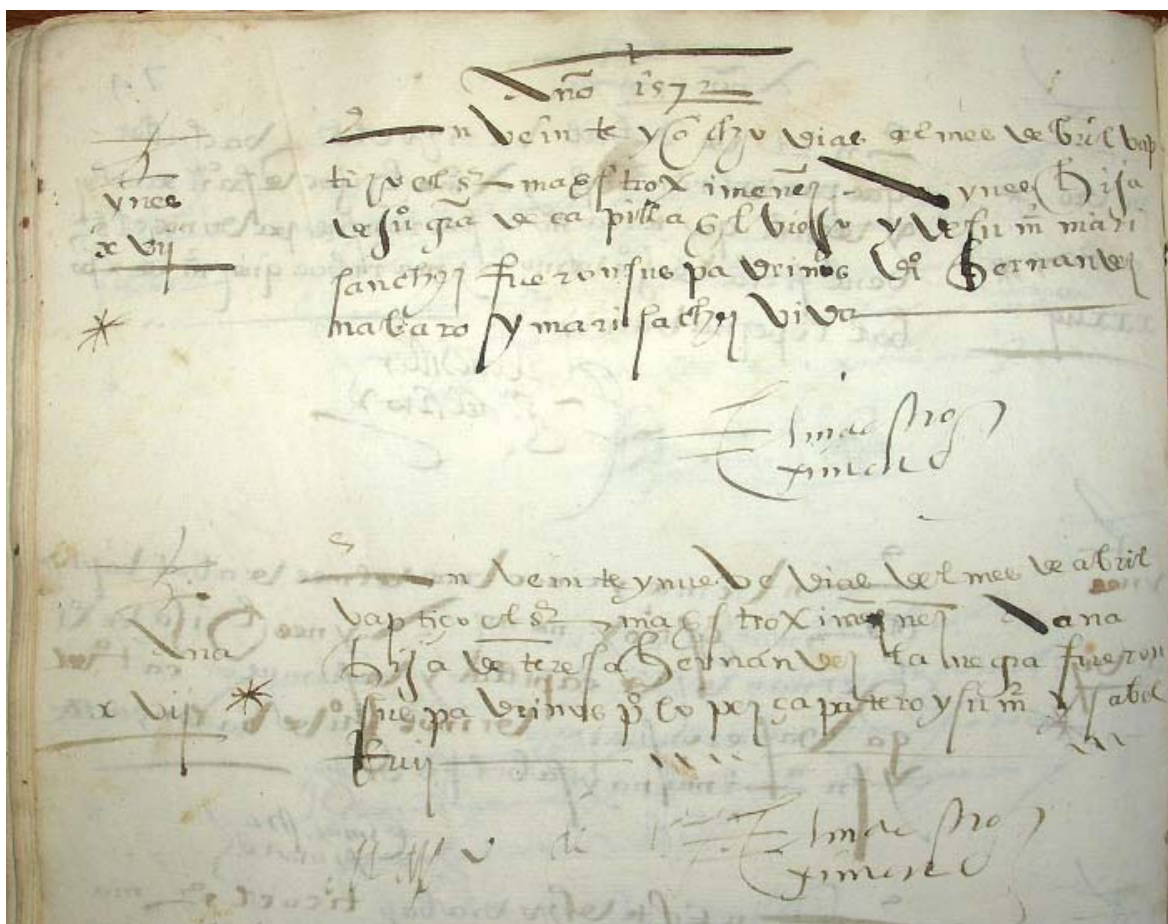 Año 1572
En veinte y ocho dias del mes de abril bap
ynes
tizo el sr maestro ximenez a ynes hija
de juo gra de capilla el biejo y de su mr mari
x vij
sanchez fueron sus padrinos do hernandez
nabaro y mari sachez viva
El maestro
ximenez
En veinte y nueve dias del mes de abril
vaptiço el sr maestro ximenez a ana
Ana
hija de teresa hernandez la negra fueron
x vij
sus padrinos po lopez çapatero y su mr ysabel
Ruiz
El maestro
ximenez